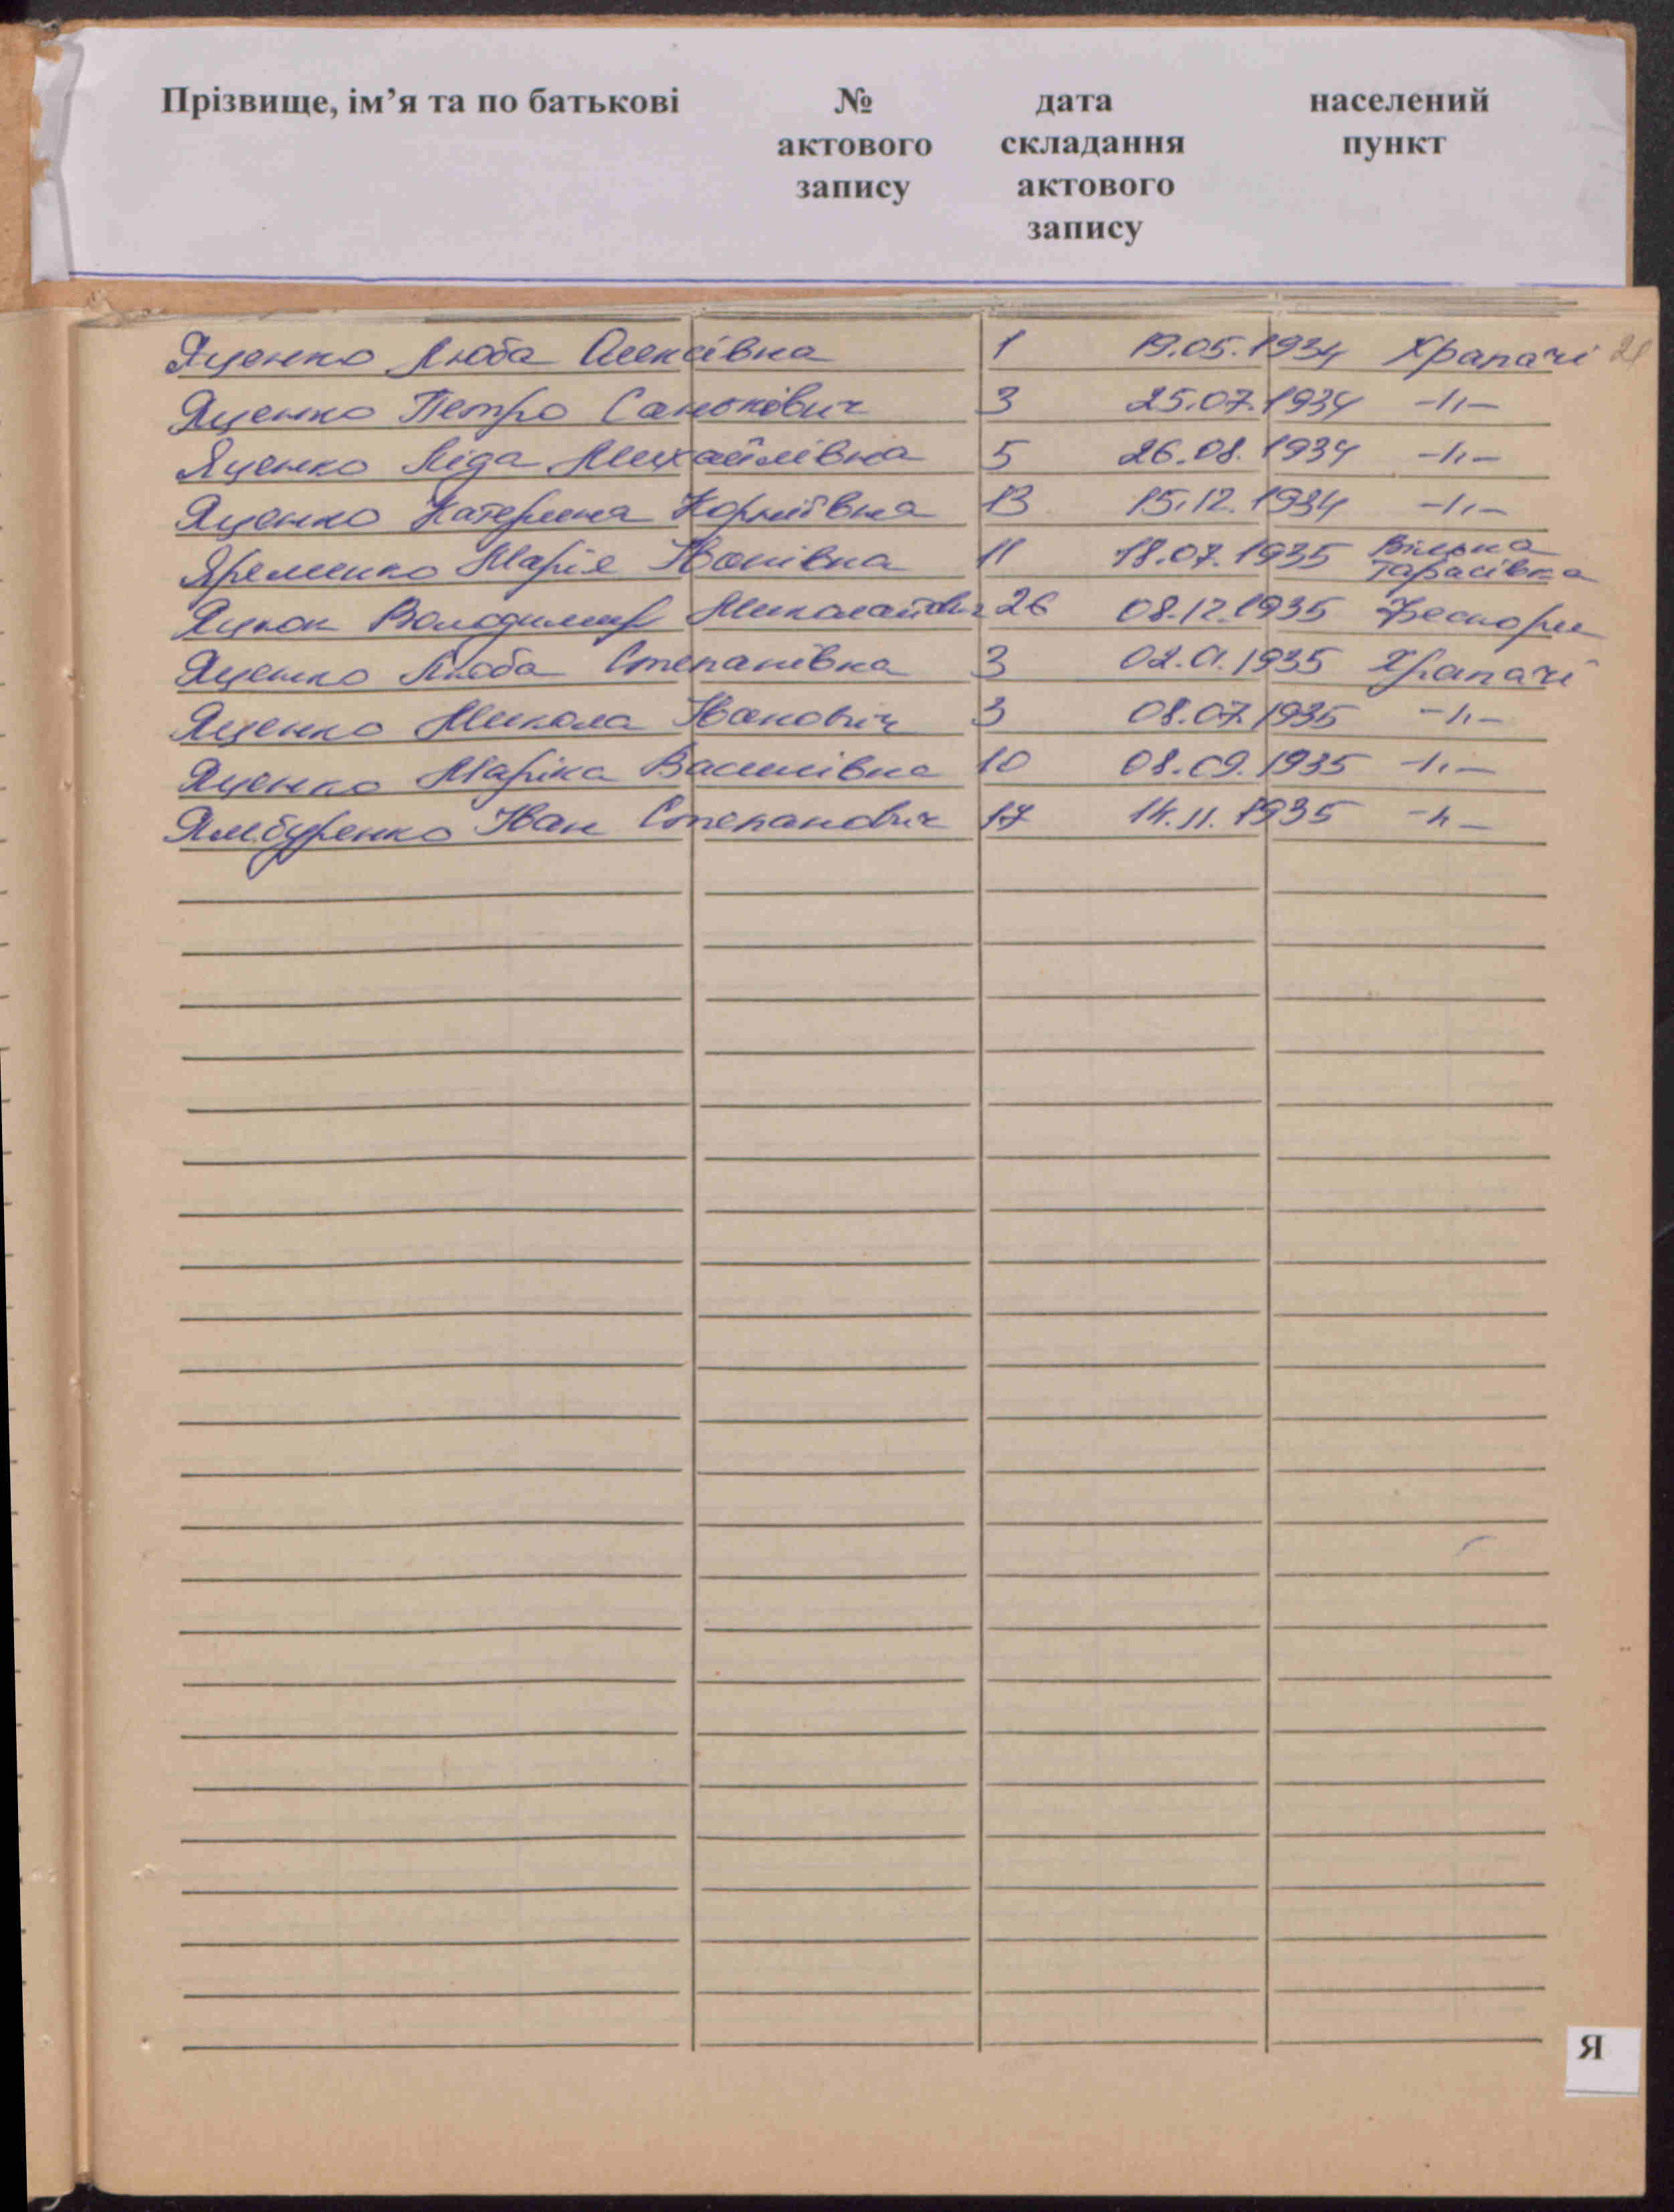 Прізвище, ім’я та по батькові № дата населений
актового складання пункт
запису актового
запису
Яценко Люба Олексівна 1 19.05.1934 Храпачі 21
Яценко Петро Санькович 3 25.07.1934 -„-
Яценко Ліда Михайлівна 5 26.08.1934 -„-
Яценко Катерина Корніївна 13 15.12.1934 -„-
Яременко Марія Іванівна 11 18.07.1935 Вільна Тарасівка
Яцюк Володимир Миколайович 26 08.12.1935
Яценко Люба Степанівна 3 02.01.1935 Храпачі
Яценко Микола Іванович 3 08.07.1935 -„-
Яценко Маріка Василівна 10 08.09.1935 -„-
Ямбуренко Іван Степанович 17 14.11.1935 -„-
Я